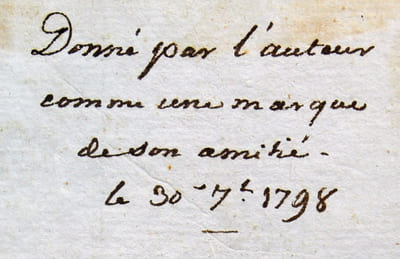 Donné par l'auteur
comme une marque
de son amitié.
le 30 7.b 1798